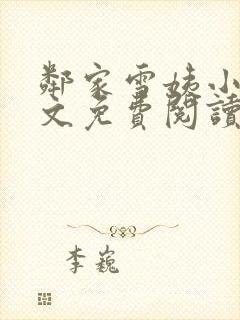 鄰家雪姨小
文免費閱讀
李巍